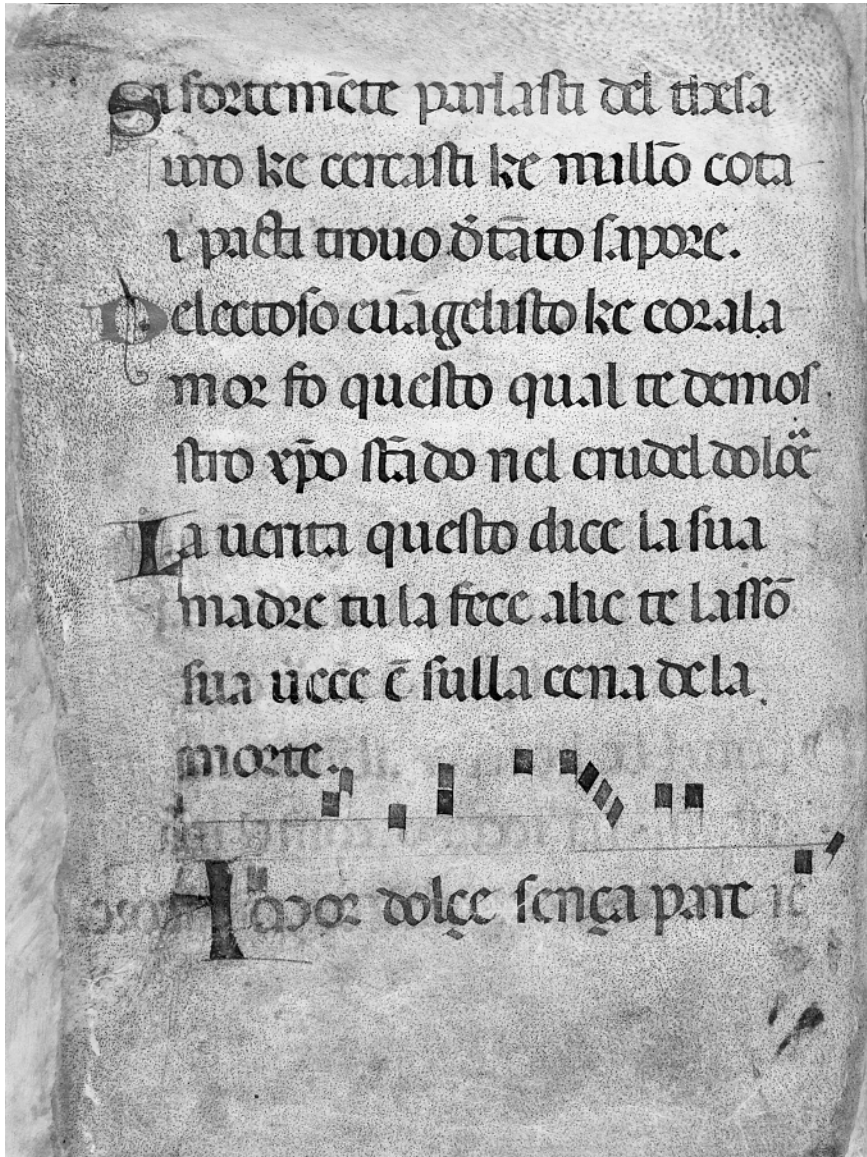 Si fortem̄ete parlasti del thesa
uro ke cercasti ke nullō cota
i pacti trouo d̄ tāto sapore.
Delectoso euāgelisto ke coral a
mor fo questo qual te demos
stro xp̄o stādo nel crudel dolore
La uerita questo dice la sua
madre tu la fece alie te lassō
sua uece ē sulla cena de la
morte.
Amor dolçe sença pare